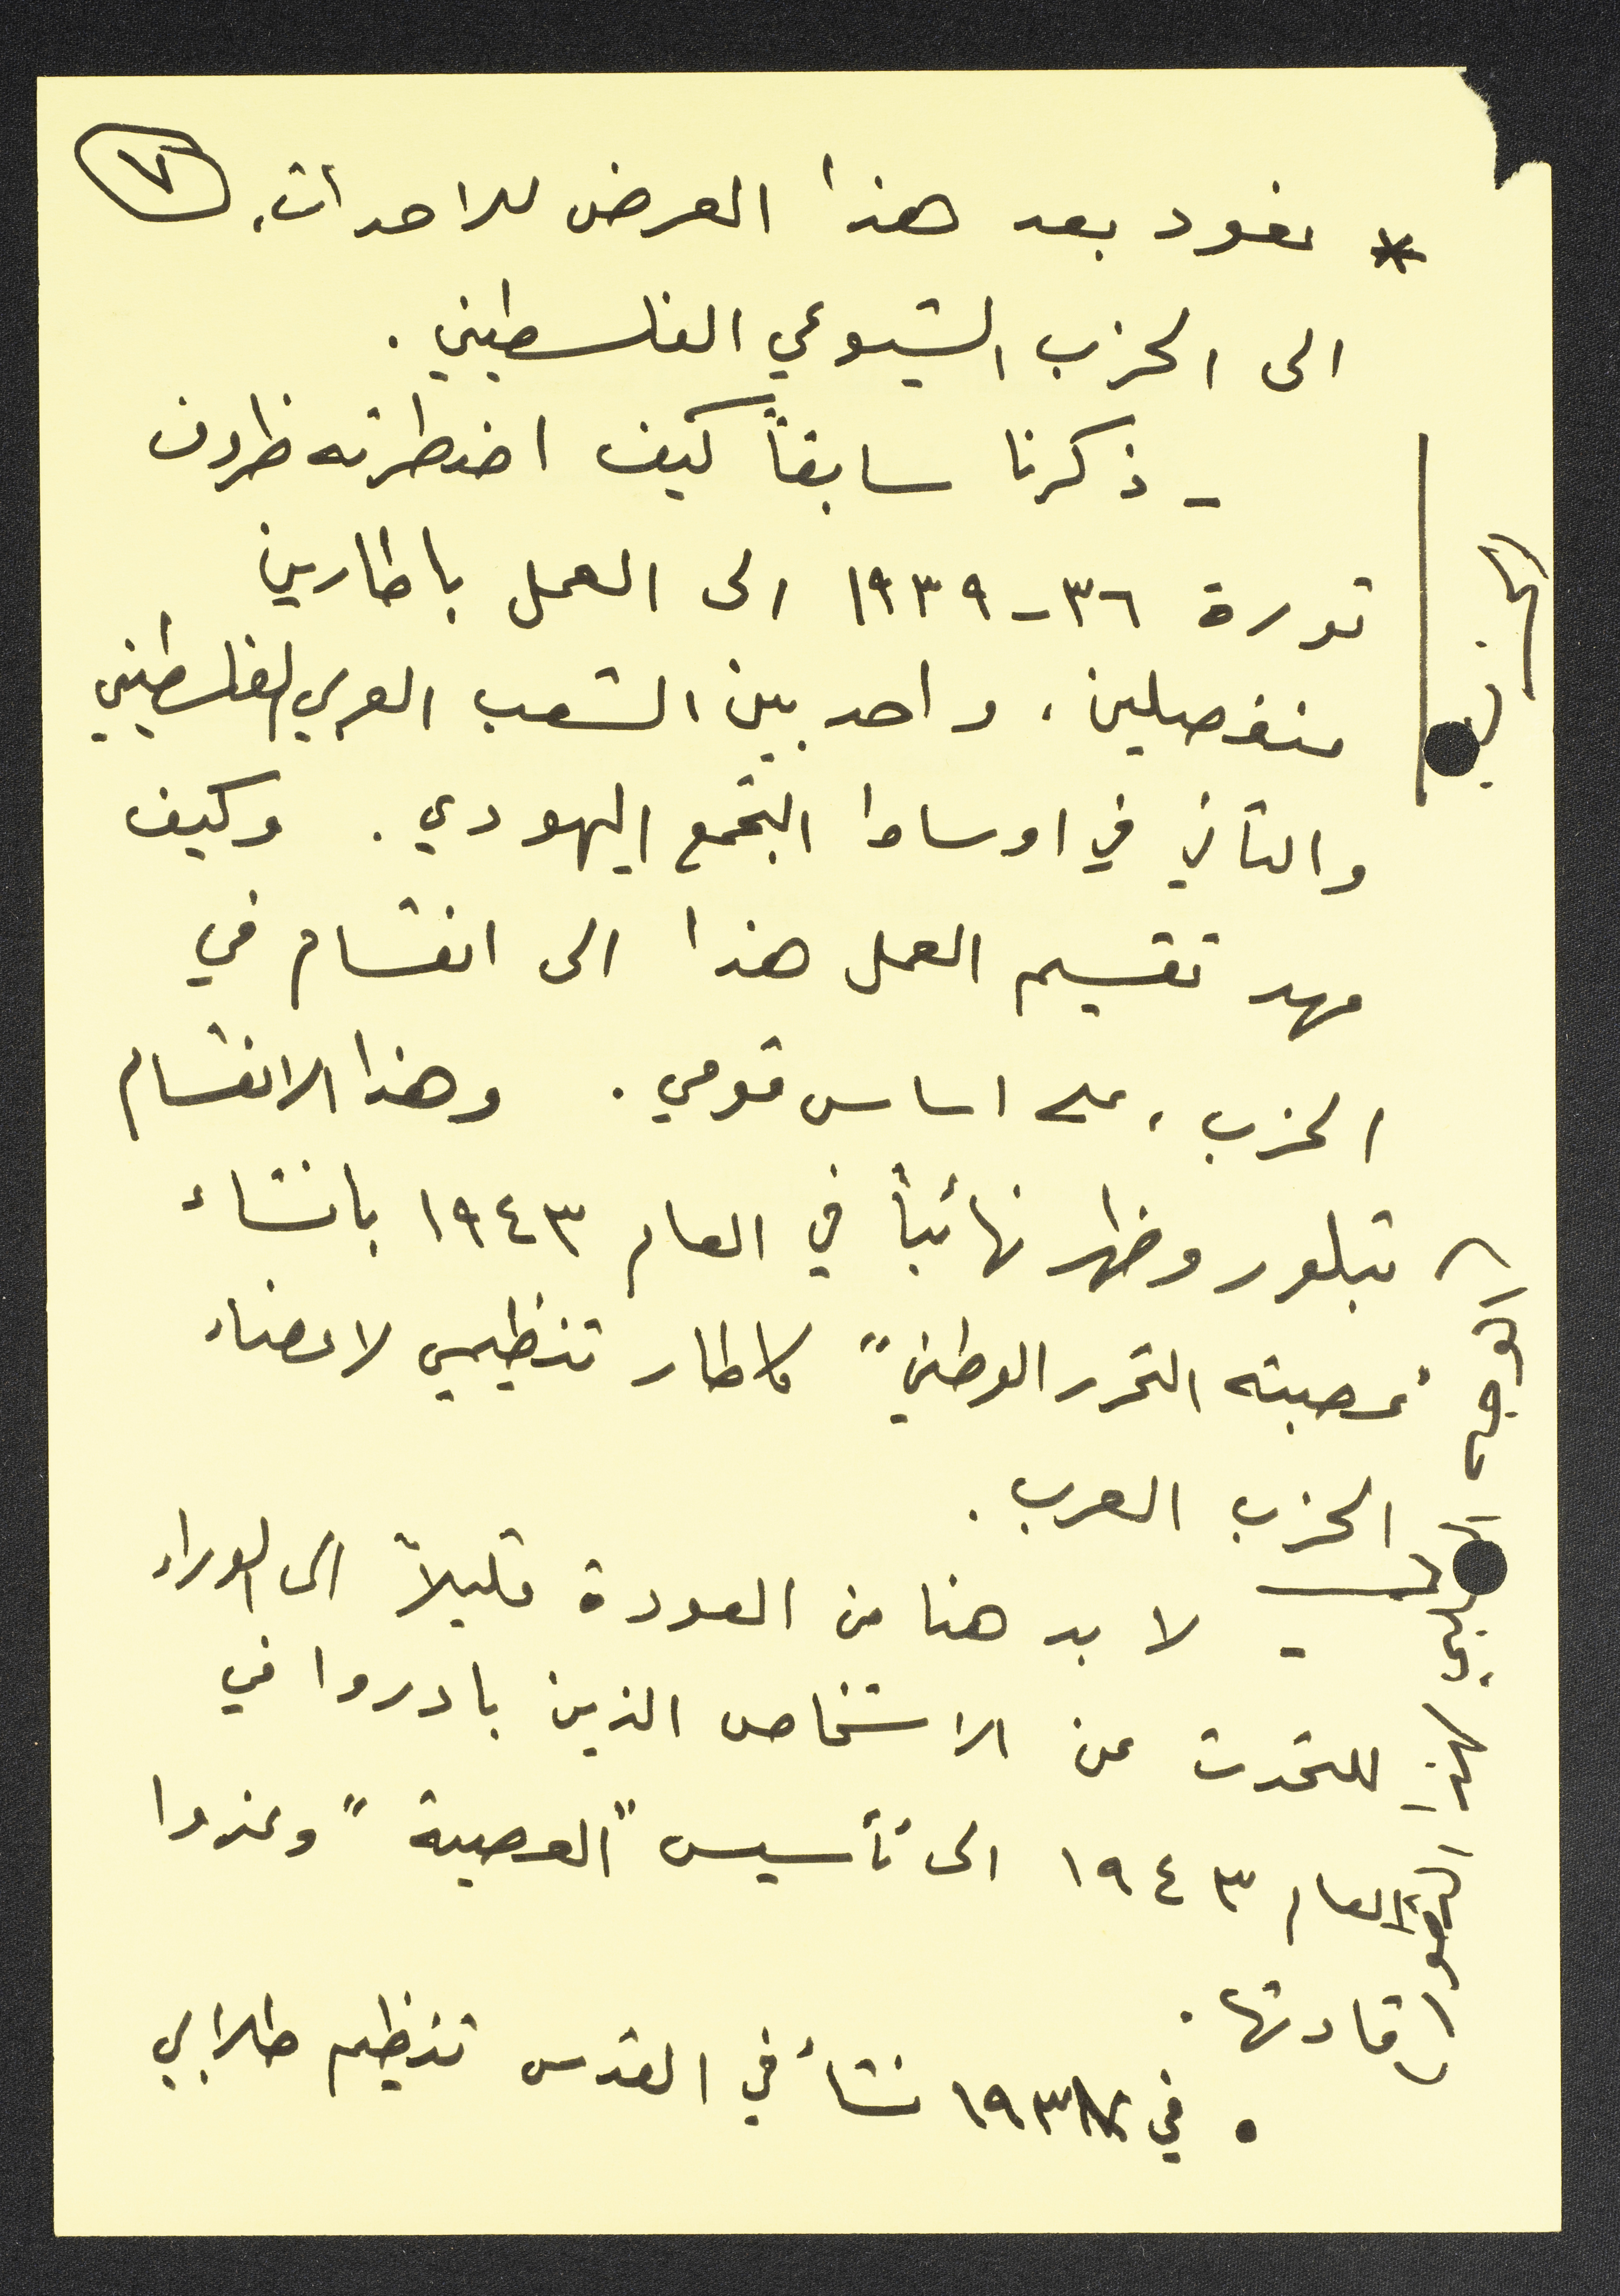 ٧
* نعود بعد هذا العرض للاحداث،
الى الحزب الشيوعي الفلسطيني.
- ذكرنا سابقاً كيف اضطرته ظروف
ثورة ٣٦-١٩٣٩ الى العمل باطارين
منفصلين، واحد بين الشعب العربي الفلسطيني
والثاني في اوساط التجمع اليهودي. وكيف
مهد تقسيم العمل هذا الى انقسام في
الحزب، على اساس قومي. وهذا الانقسام
تبلور وظهر نهائياً في العام ١٩٤٣ بانشاء
"عصبة التحرر الوطني" كاطار تنظيمي لاعضاء
الحزب العرب.
- لا بد هنا من العودة قليلاً الى الوراء
للتحدث عن الاشخاص الذين بادروا في
العام ١٩٤٣ الى تأسيس "العصبة" وغدوا
قادتها.
• في ١٩٣٧ نشأ في القدس تنظيم طلابي
الحزب
الوجه السلبي لهذا التطور